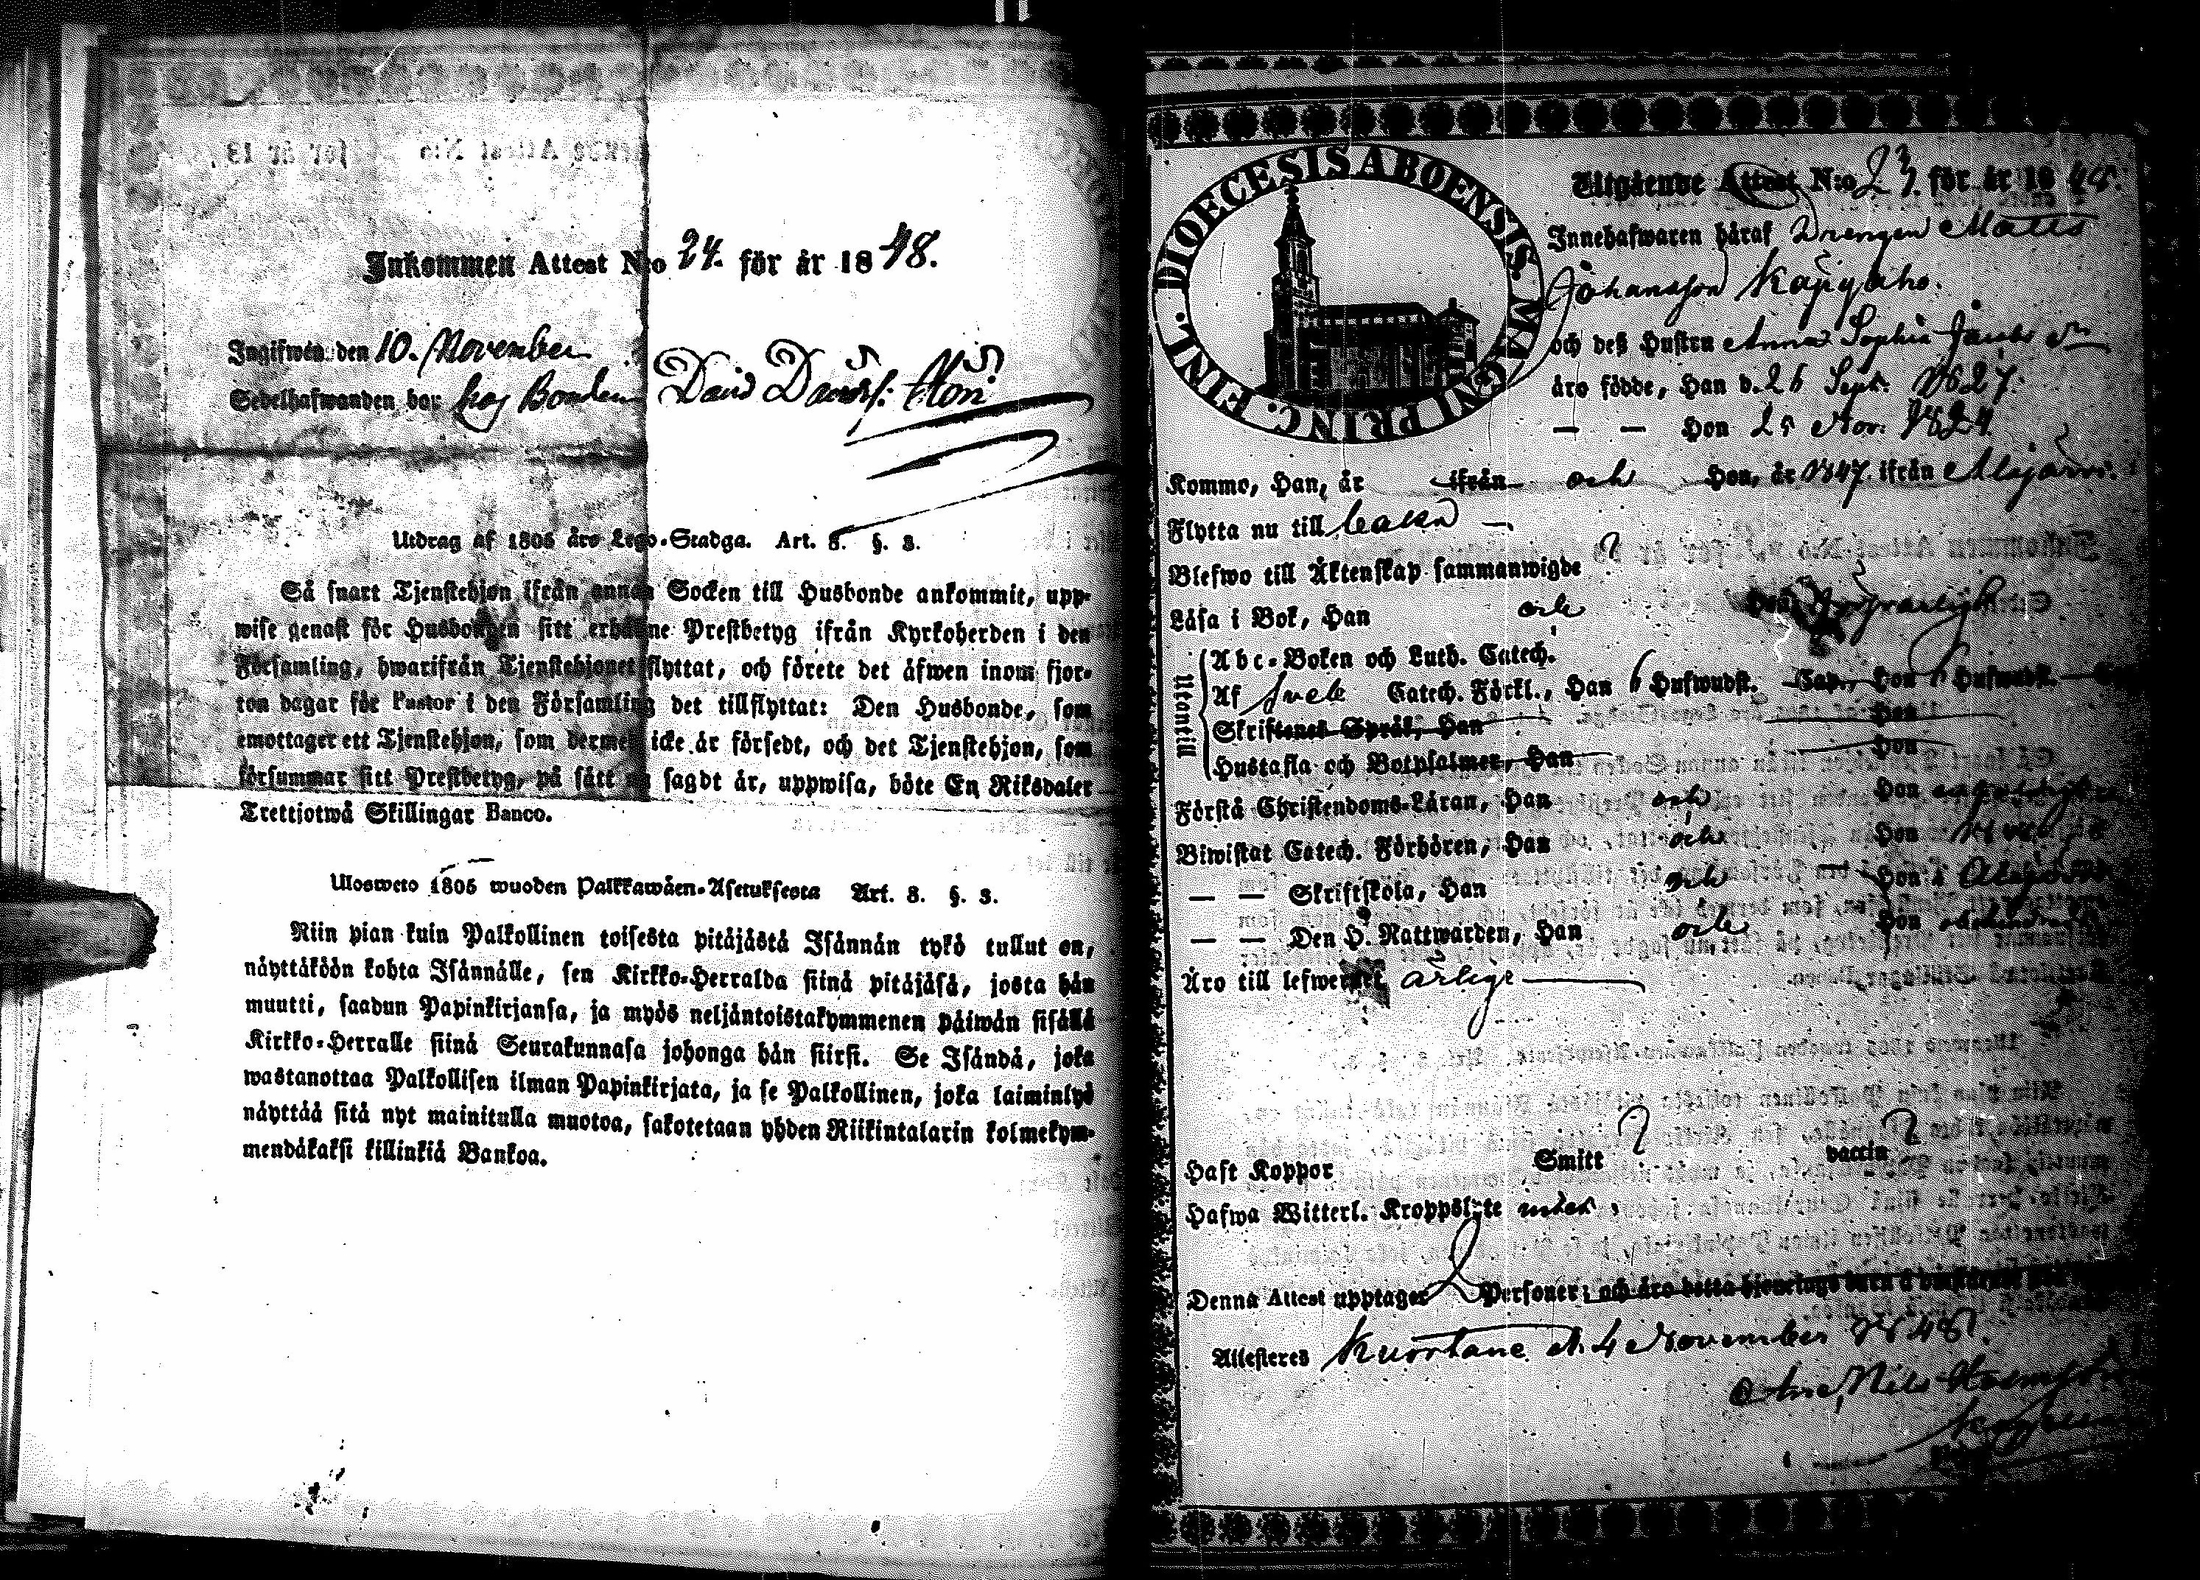 Inkommen Attest N:o 24. för år 1848.
Ingifwen den 10. November
Sedelhafwanden har hos Bonden David Davidss:
Utdrag af 1805 års Lego-Stadga. Art. 8. §. 3.
Så snart Tjenstehjon ifrån annan Socken till Husbonde ankommit, upp-
wise genast för Husbonden sitt erhållne Prestbetyg ifrån Kyrkoherden i den
Församling, hwarifrån Tjenstehjonet flyttat, och förete det äfwen inom fjor-
ton dagar för Pastor i den Församling det tillflyttat: Den Husbonde, som
emottager ett Tjenstehjon, som dermed icke är försedt, och det Tjenstehjon, som
försummar sitt Prestbetyg, på sätt nu sagdt är, uppwisa, böte En Riksdaler
Trettjotwå Skillingar Banco.
Ulosweto 1805 wuoden Palkkawäen-Asetuksesta Art. 8. §. 3.
Niin pian kuin Palkollinen toisesta pitäjästä Isännän tykö tullut on,
näyttäköön kohta Isännälle, sen Kirkko-Herralda siinä pitäjäsä, josta hän
muutti, saadun Papinkirjansa, ja myös neljäntoistakymmenen päiwän sisällä
Kirkko-Herralle siinä Seurakunnasa johonga hän siirsi. Se Isändä, joka
wastanottaa Palkollisen ilman Papinkirjata, ja se Palkollinen, joka laiminlyö
näyttää sitä nyt mainitulla muotoa, sakotetaan yhden Riikintalarin kolmekym-
mendäkaksi killinkiä Bankoa.
DIOECESIS ABOENSIS. MAGNI PRINC. FINL.
Utgående Attest N:o 23. för år 1848.
Innehafwaren häraf Drengen Matts
Johansson
och deß Hustru Anna Sophia Jacobs dr
äro födde, Han d. 26 Sept. 1827.
— — Hon 25 Nov. 1824
Kommo, Han, år ifrån och Hon, år 1847 ifrån Alajärvi.
Flytta nu till
Blefwo till Äktenskap sammanwigde ?
Läsa i Bok, Han och Hon
Utantill
Abc-Boken och Luth. Catech.
Af Sveb Catech. Förkl., Han 6 Hufwudst. Cap., Hon 6 Hufwudst.
Skriftenes Språk, Han Hon
Hustafla och Botpsalmer, Han Hon
Förstå Christendoms-Läran, Han och Hon
Biwistat Catech. Förhören, Han och Hon
— — Skriftskola, Han och Hon i Alajärvi
— — Den H. Nattwarden, Han och Hon
Äro till lefwernet ärlige
Haft Koppor Smitt ? vaccin ?
Hafwa Witterl. Kroppslyte
Denna Attest upptager 2 Personer; och äro detta
Attesteras Kuortane d. 4 November 1848.
Nils